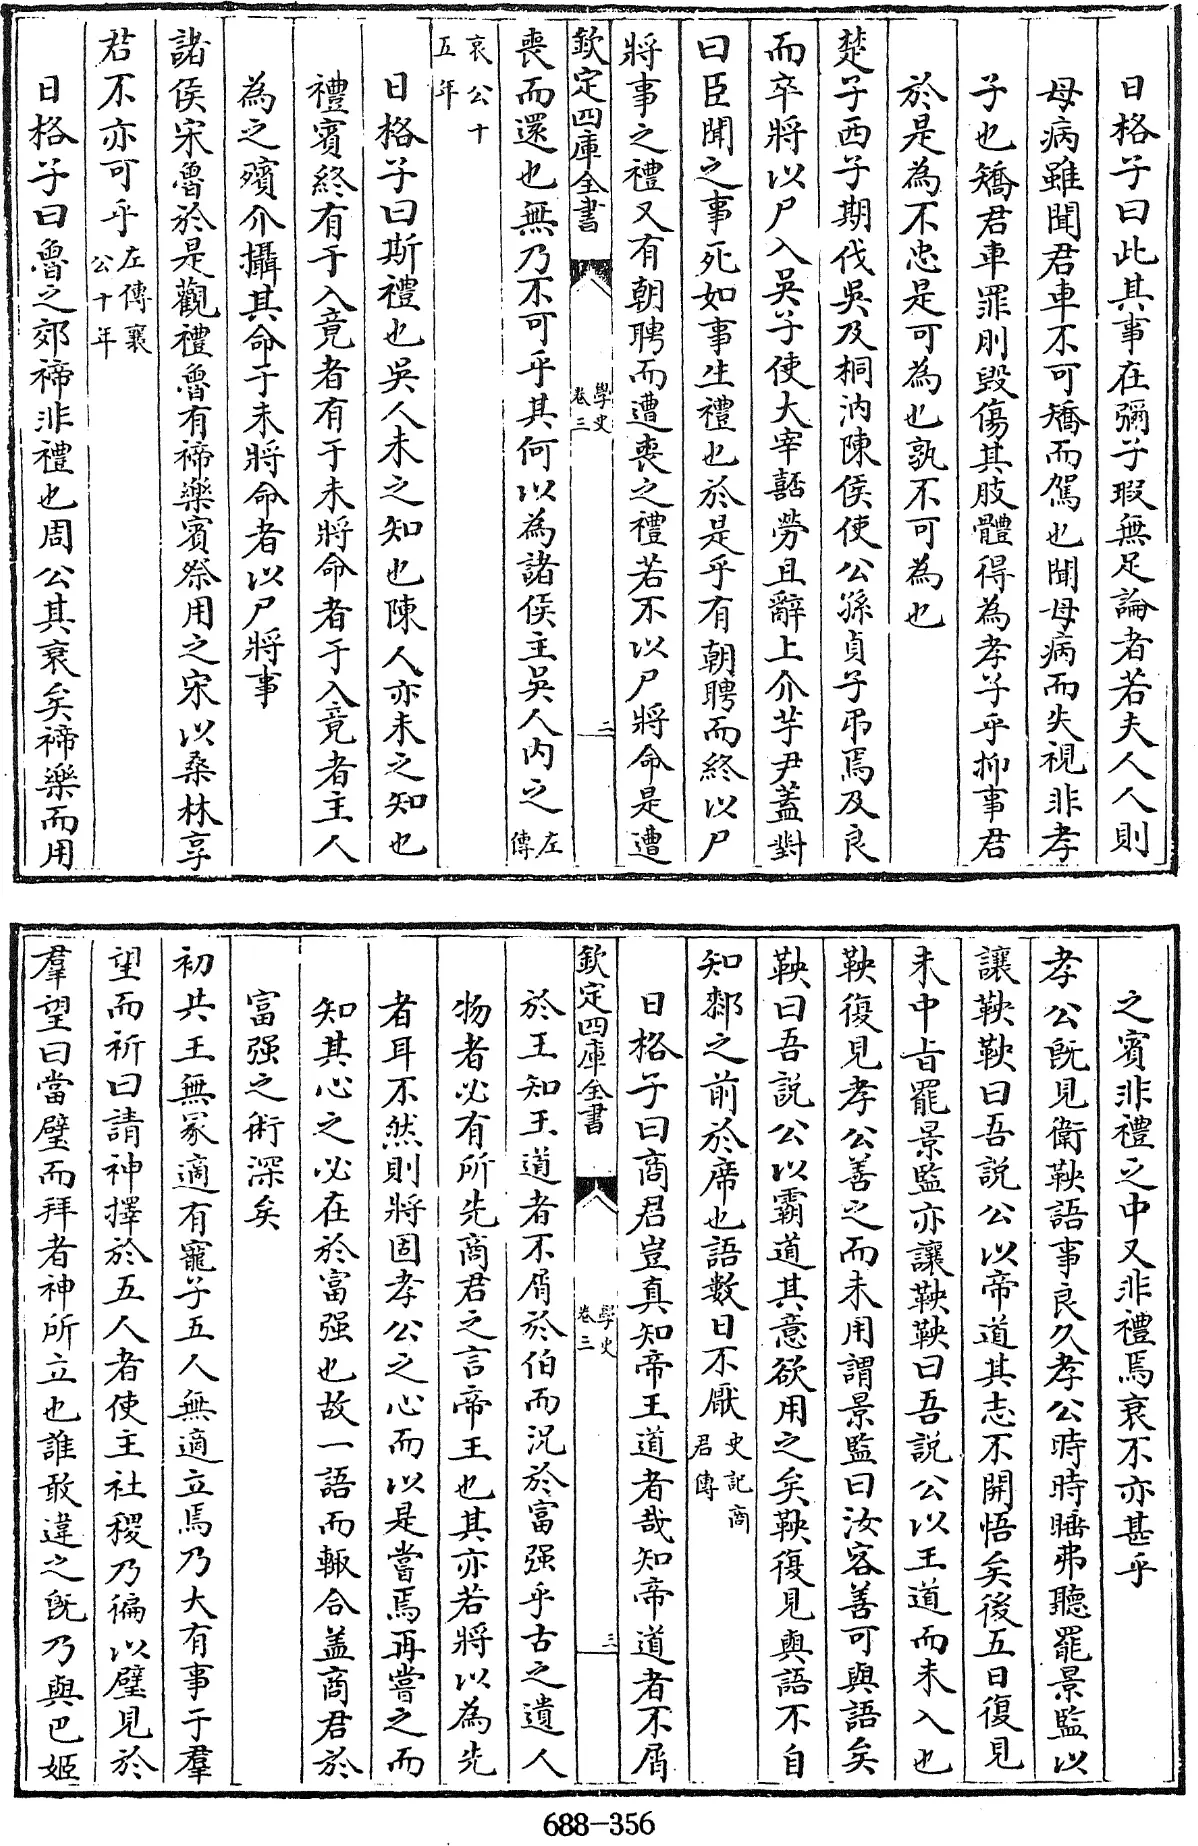 日格子曰此其事在彌子瑕無足論者若夫人人則
母病雖聞君車不可矯而駕也聞母病而失視非孝
子也矯君車罪刖毀傷其肢體得為孝子乎抑事君
於是為不忠是可為也孰不可為也
楚子西子期伐吳及桐汭陳侯使公孫貞子弔焉及良
而卒將以尸入吳子使大宰嚭勞且辭上介芋尹蓋對
曰臣聞之事死如事生禮也於是乎有朝聘而終以尸
將事之禮又有朝聘而遭喪之禮若不以尸將命是遭
欽定四庫全書
學史
卷三
二
喪而還也無乃不可乎其何以為諸侯主吳人內之左傳
哀公十五年
日格子曰斯禮也吳人未之知也陳人亦未之知也
禮賓終有于入竟者有于未將命者于入竟者主人
為之殯介攝其命于未將命者以尸將事
諸侯宋魯於是觀禮魯有禘樂賓祭用之宋以桑林享
君不亦可乎左傳襄公十年
日格子曰魯之郊禘非禮也周公其衰矣禘樂而用
之賓非禮之中又非禮焉衰不亦甚乎
孝公旣見衛鞅語事良久孝公時時睡弗聽罷景監以
讓鞅鞅曰吾說公以帝道其志不開悟矣後五日復見
未中㫖罷景監亦讓鞅鞅曰吾說公以王道而未入也
鞅復見孝公善之而未用謂景監曰汝客善可與語矣
鞅曰吾說公以霸道其意欲用之矣鞅復見與語不自
知厀之前於席也語數日不厭史記商君傳
日格子曰商君豈真知帝王道者哉知帝道者不屑
欽定四庫全書
學史
卷三
三
於王知王道者不屑於伯而況於富强乎古之遺人
物者必有所先商君之言帝王也其亦若將以為先
者耳不然則將固孝公之心而以是當焉再嘗之而
知其心之必在於富强也故一語而輙合盖商君於
富强之術深矣
初共王無冢適有寵子五人無適立焉乃大有事于羣
望而祈曰請神擇於五人者使主社稷乃徧以璧見於
羣望曰當璧而拜者神所立也誰敢違之旣乃與巴姬
688-356